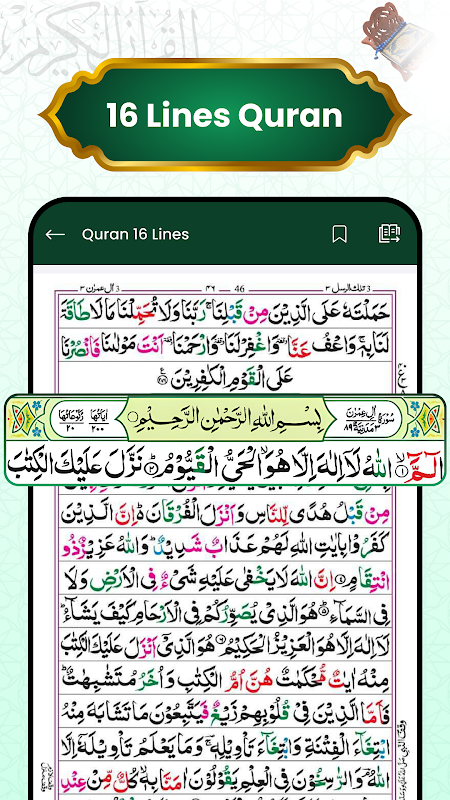 القرآن الكريم
16 Lines Quran
Quran 16 Lines
3 اٰل عمرٰن ٣ 46 ٤٦ 3 تلك الرسل ٣
حَمَلْتَهٗ عَلَى الَّذِيْنَ مِنْ قَبْلِنَا ۚ رَبَّنَا وَلَا تُحَمِّلْنَا مَا لَا طَاقَةَ
لَنَا بِهٖ ۚ وَاعْفُ عَنَّا ۥ وَاغْفِرْ لَنَا ۥ وَارْحَمْنَا ۥ اَنْتَ مَوْلٰىنَا فَانْصُرْنَا
عَلَى الْقَوْمِ الْكٰفِرِيْنَ
سُوْرَةُ اٰلِ عِمْرٰنَ ٣ مَدَنِيَّةٌ ٨٩ بِسْمِ اللّٰهِ الرَّحْمٰنِ الرَّحِيْمِ اٰيَاتُهَا ٢٠٠ رُكُوْعَاتُهَا ٢٠
الٓمّٓ ۝١ اللّٰهُ لَاۤ اِلٰهَ اِلَّا هُوَ ۙ الْحَيُّ الْقَيُّوْمُ ۝٢ نَزَّلَ عَلَيْكَ الْكِتٰبَ
مِنْ قَبْلُ هُدًى لِّلنَّاسِ وَاَنْزَلَ الْفُرْقَانَ ۥ اِنَّ الَّذِيْنَ
كَفَرُوْا بِاٰيٰتِ اللّٰهِ لَهُمْ عَذَابٌ شَدِيْدٌ ؕ وَاللّٰهُ عَزِيْزٌ ذُو
انْتِقَامٍ ۝٤ اِنَّ اللّٰهَ لَا يَخْفٰى عَلَيْهِ شَيْءٌ فِى الْاَرْضِ وَلَا
فِى السَّمَآءِ ۝٥ هُوَ الَّذِيْ يُصَوِّرُكُمْ فِى الْاَرْحَامِ كَيْفَ يَشَآءُ ؕ
لَاۤ اِلٰهَ اِلَّا هُوَ الْعَزِيْزُ الْحَكِيْمُ ۝٦ هُوَ الَّذِيْۤ اَنْزَلَ عَلَيْكَ الْكِتٰبَ
مِنْهُ اٰيٰتٌ مُّحْكَمٰتٌ هُنَّ اُمُّ الْكِتٰبِ وَاُخَرُ مُتَشٰبِهٰتٌ ؕ
فَاَمَّا الَّذِيْنَ فِيْ قُلُوْبِهِمْ زَيْغٌ فَيَتَّبِعُوْنَ مَا تَشَابَهَ مِنْهُ
ابْتِغَآءَ الْفِتْنَةِ وَابْتِغَآءَ تَاْوِيْلِهٖ ۚ وَمَا يَعْلَمُ تَاْوِيْلَهٗۤ اِلَّا
اللّٰهُ ۘ وَالرّٰسِخُوْنَ فِى الْعِلْمِ يَقُوْلُوْنَ اٰمَنَّا بِهٖ ۙ كُلٌّ مِّنْ عِنْدِ